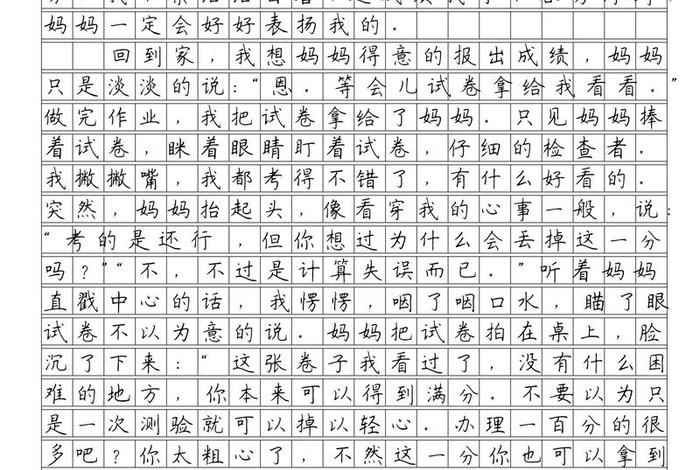 妈妈一定会好好表扬我的.
回到家，我想妈妈得意的报出成绩，妈妈
只是淡淡的说：“恩.等会儿试卷拿给我看看.”
做完作业，我把试卷拿给了妈妈.只见妈妈捧
着试卷，眯着眼睛盯着试卷，仔细的检查者.
我撇撇嘴，我都考得不错了，有什么好看的.
突然，妈妈抬起头，像看穿我的心事一般，说：
“考的是还行，但你想过为什么会丢掉这一分
吗？”“不，不过是计算失误而已.”听着妈妈
直戳中心的话，我愣愣，咽了咽口水，瞄了眼
试卷不以为意的说.妈妈把试卷拍在桌上，脸
沉了下来：“这张卷子我看过了，没有什么困
难的地方，你本来可以得到满分.不要以为只
是一次测验就可以掉以轻心.办理一百分的很
多吧？你太粗心了，不然这一分你也可以拿到